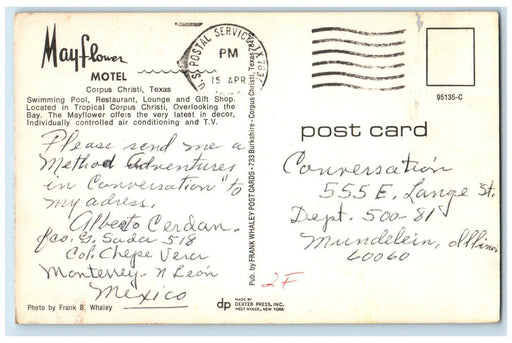 Mayflower
MOTEL
Corpus Christi, Texas
Swimming Pool, Restaurant, Lounge and Gift Shop.
Located in Tropical Corpus Christi, Overlooking the
Bay. The Mayflower offers the very latest in decor,
Individually controlled air conditioning and T.V.
Please send me a
Method Adventures
in Conversation" to
my adress.
Alberto Cerdan.
Fco. G. Sada 518
Col. Chepe Vera
Monterrey - N León
México
Photo by Frank B. Whaley
U.S. POSTAL SERVICE, TX 783
PM
15 APR
Pub. by FRANK WHALEY POST CARDS - 733 Burkshire - Corpus Christi, Texas 784
2F
dp
MADE BY
DEXTER PRESS, INC.
WEST NYACK, NEW YORK
95135-C
post card
Conversation
555 E. Lange St.
Dept. 500-81
Mundelein, Illinois
60060